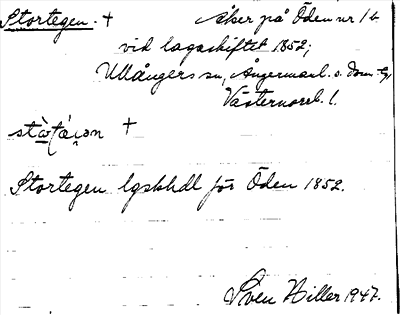 Stortegen. + Åker på Öden nr 1 b
vid lagaskiftet 1852;
Ullångers sn, Ångermanl. s. doms.
Västernorrl. l.
+
Stortegen lgskhdl för Öden 1852.
Sven Hiller 1947.